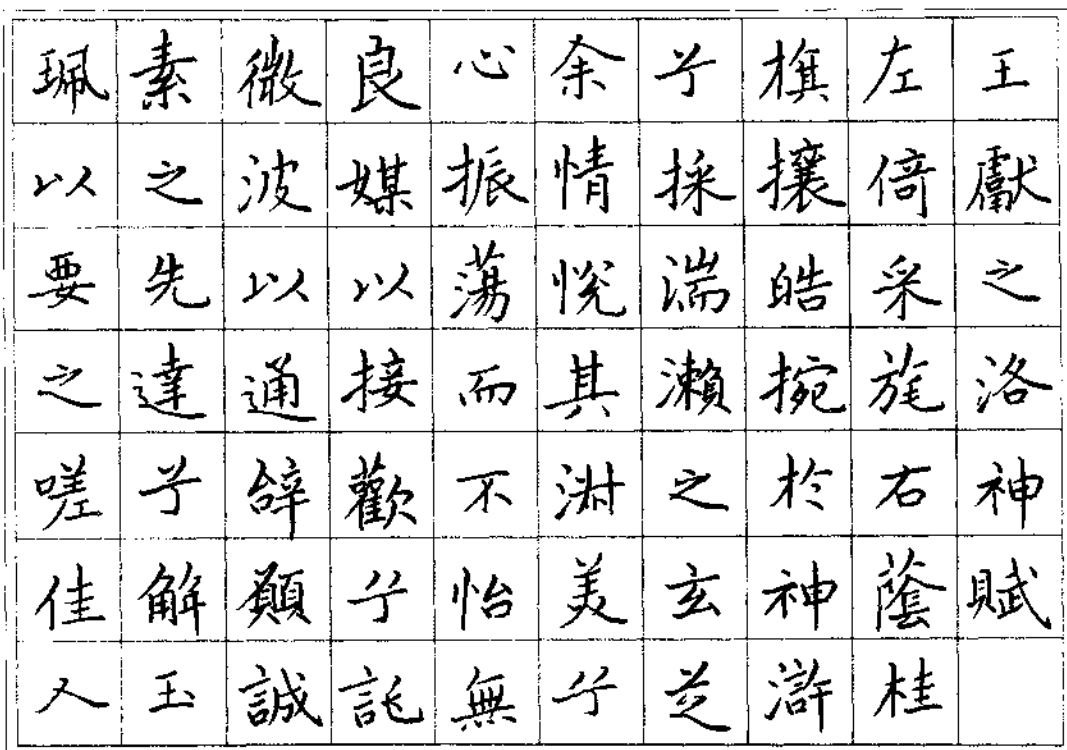 王獻之洛神賦
左倚采旄右蔭桂
旗攘皓捥於神滸
兮採湍瀨之玄芝
余情悅其淑美兮
心振蕩而不怡無
良媒以接歡兮託
微波以通辝願誠
素之先達兮解玉
珮以要之嗟佳人